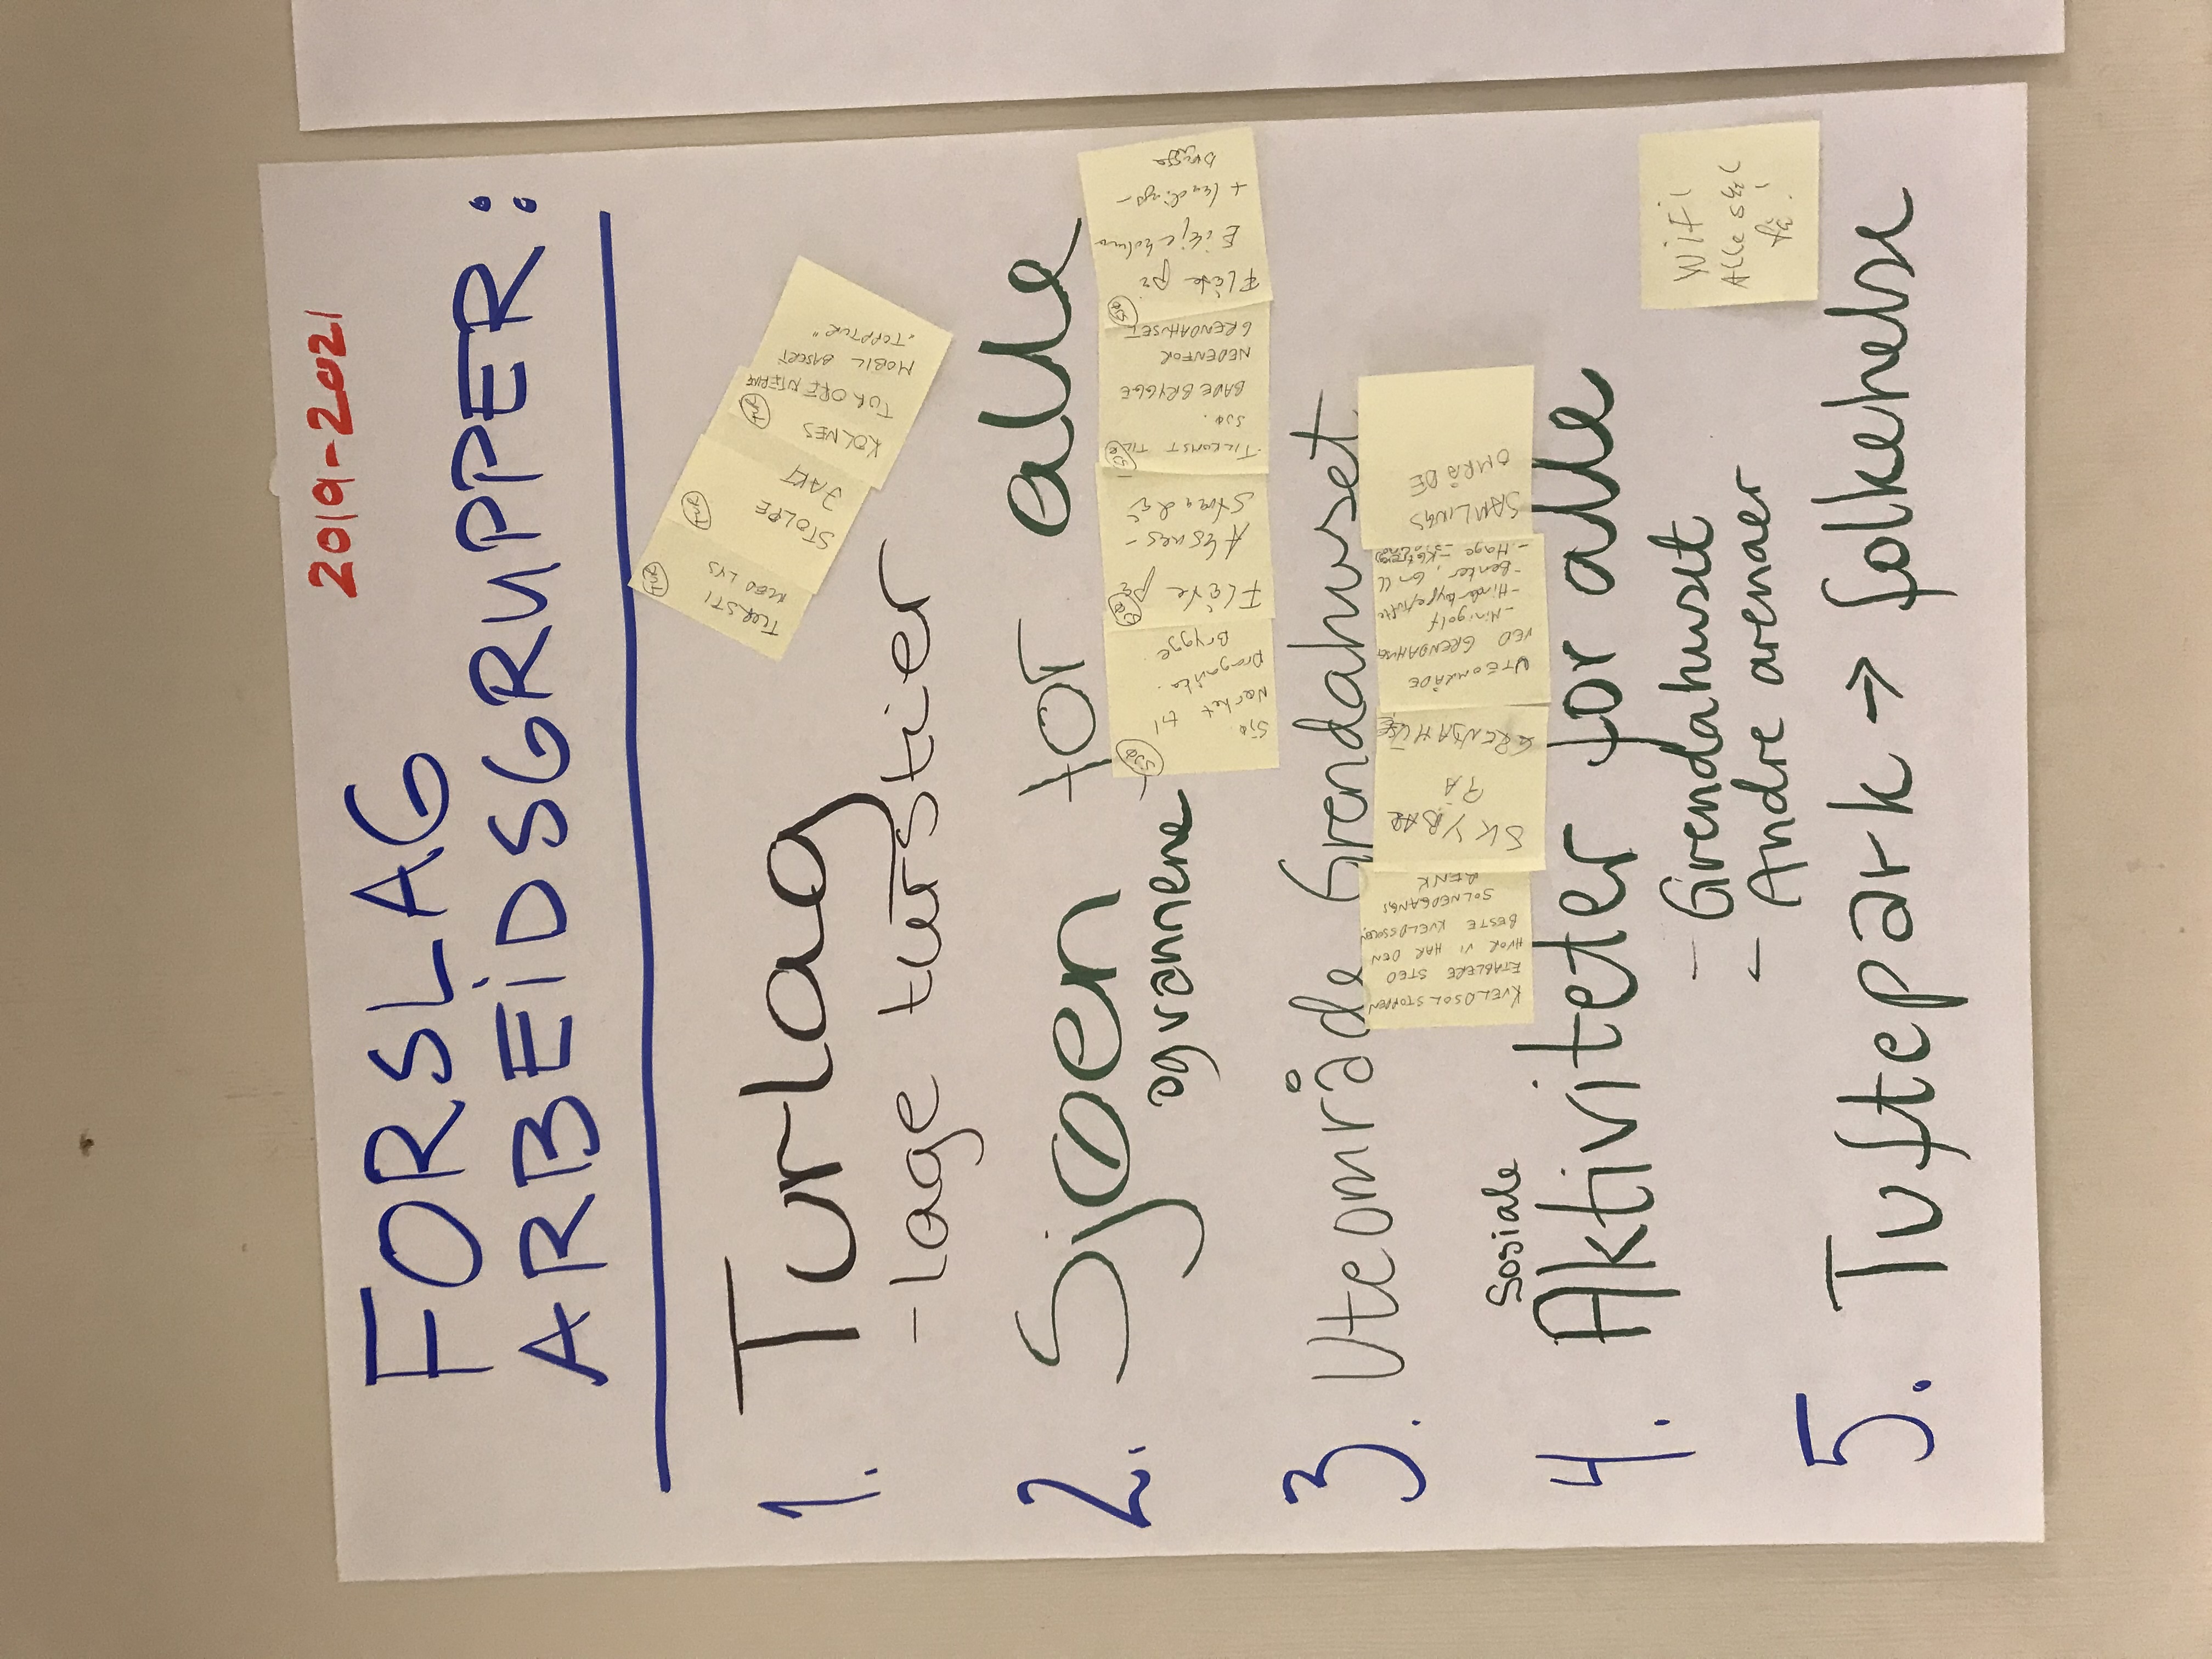 2019-2021
FORSLAG
ARBEIDSGRUPPER:
1. Turlag
-lage turstier
TURSTI
MED LYS
TUR
STOLPE
JAKT
TUR
KOLNES
TUR ORIENTERING
TUR
MOBIL BASERT
"TOPPTUR"
2. Sjøen for alle
og vannene
Sjø
Merket til
Brygge.
SJØ
Flåte på
SJØ
TILKOMST TIL
SJØ.
BADEBRYGGE
NEDENFOR
GRENDAHUSET
SJØ
Flåte på
+ landings-
brygge
SJØ
3. Uteområde Grendahuset
KVELDSOLSTOPPEN
ETABLERE STED
HVOR VI HAR DEN
BESTE KVELDSSOLEN
SOLNEDGANGS
BENK
SKYBAR
PÅ
GRENDAHUSET
UTEOMRÅDE
VED GRENDAHUSET
- Minigolf
- Hinderløype
- Benker, Grill
- Hage
SAMLINGS
OMRÅDE
4. Sosiale
Aktiviteter for alle
- Grendahuset
- Andre arenaer
WiFi
Alle skal
få!
5. Tuftepark → folkehelse